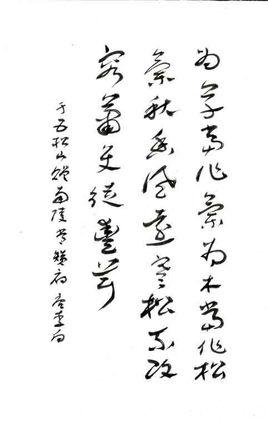 為草當作蘭為木當作松
蘭秋香風遠寒松不改
容蕭艾徒豐茸
于五松山贈南陵常贊府 唐李白